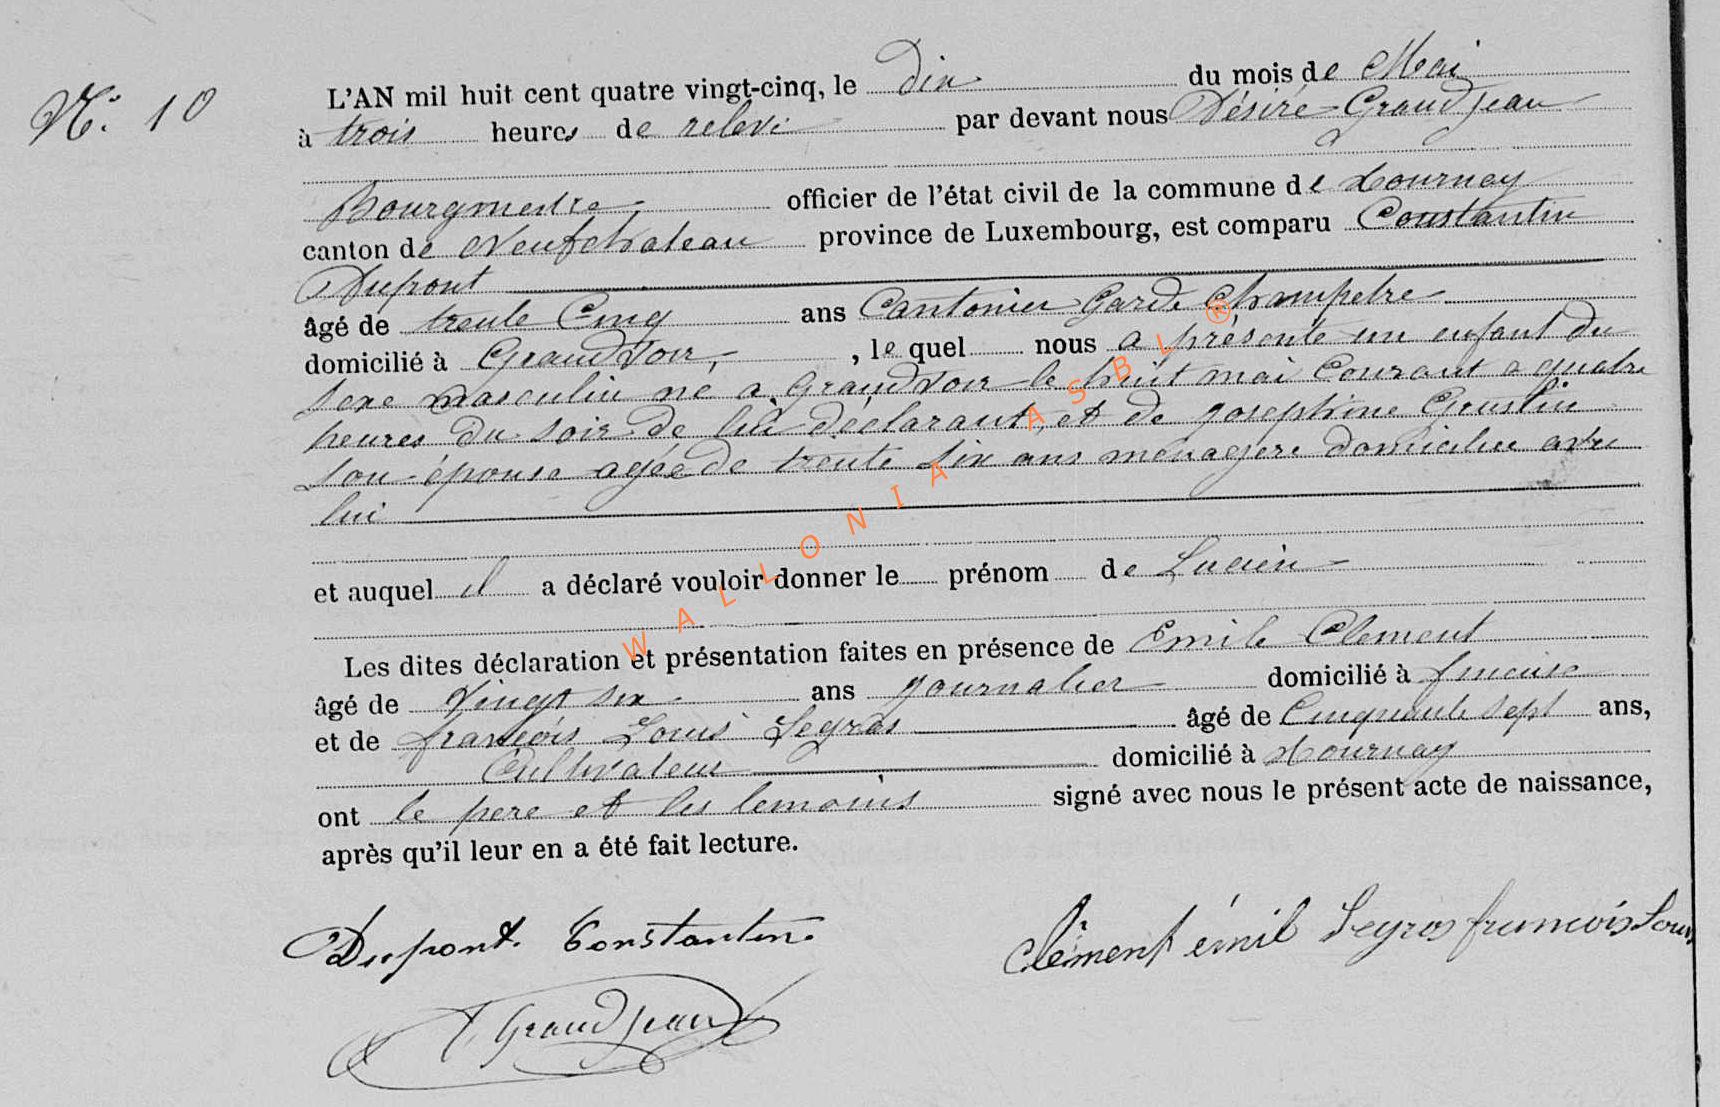 N.° 10
L'AN mil huit cent quatre vingt-cinq, le dix du mois de Mai
à trois heures de relevé par devant nous Désiré Grandjean
Bourgmestre officier de l'état civil de la commune de Tournay
canton de Neufchateau province de Luxembourg, est comparu Constantin
Dupont
âgé de trente Cinq ans Cantonier Garde Champetre
domicilié à Grandvoir, , le quel nous a présenté un enfant du
sexe masculin né a Grandvoir le huit mai Courant a quatre
heures du soir de lui déclarant, et de Joséphine Goustin
son épouse agée de trente six ans ménagère domiciliée avec
lui
et auquel il a déclaré vouloir donner le prénom de Lucien
Les dites déclaration et présentation faites en présence de Emile Clement
âgé de Vingt six ans Journalier domicilié à
et de françois Louis Legros âgé de Cinquante sept ans,
Cultivateur domicilié à Tournay
ont le pere et les temoins signé avec nous le présent acte de naissance,
après qu'il leur en a été fait lecture.
Dupont. Constantin. Clément émil Legros francois Louis
Grandjean
WALLONIA ASBL ®